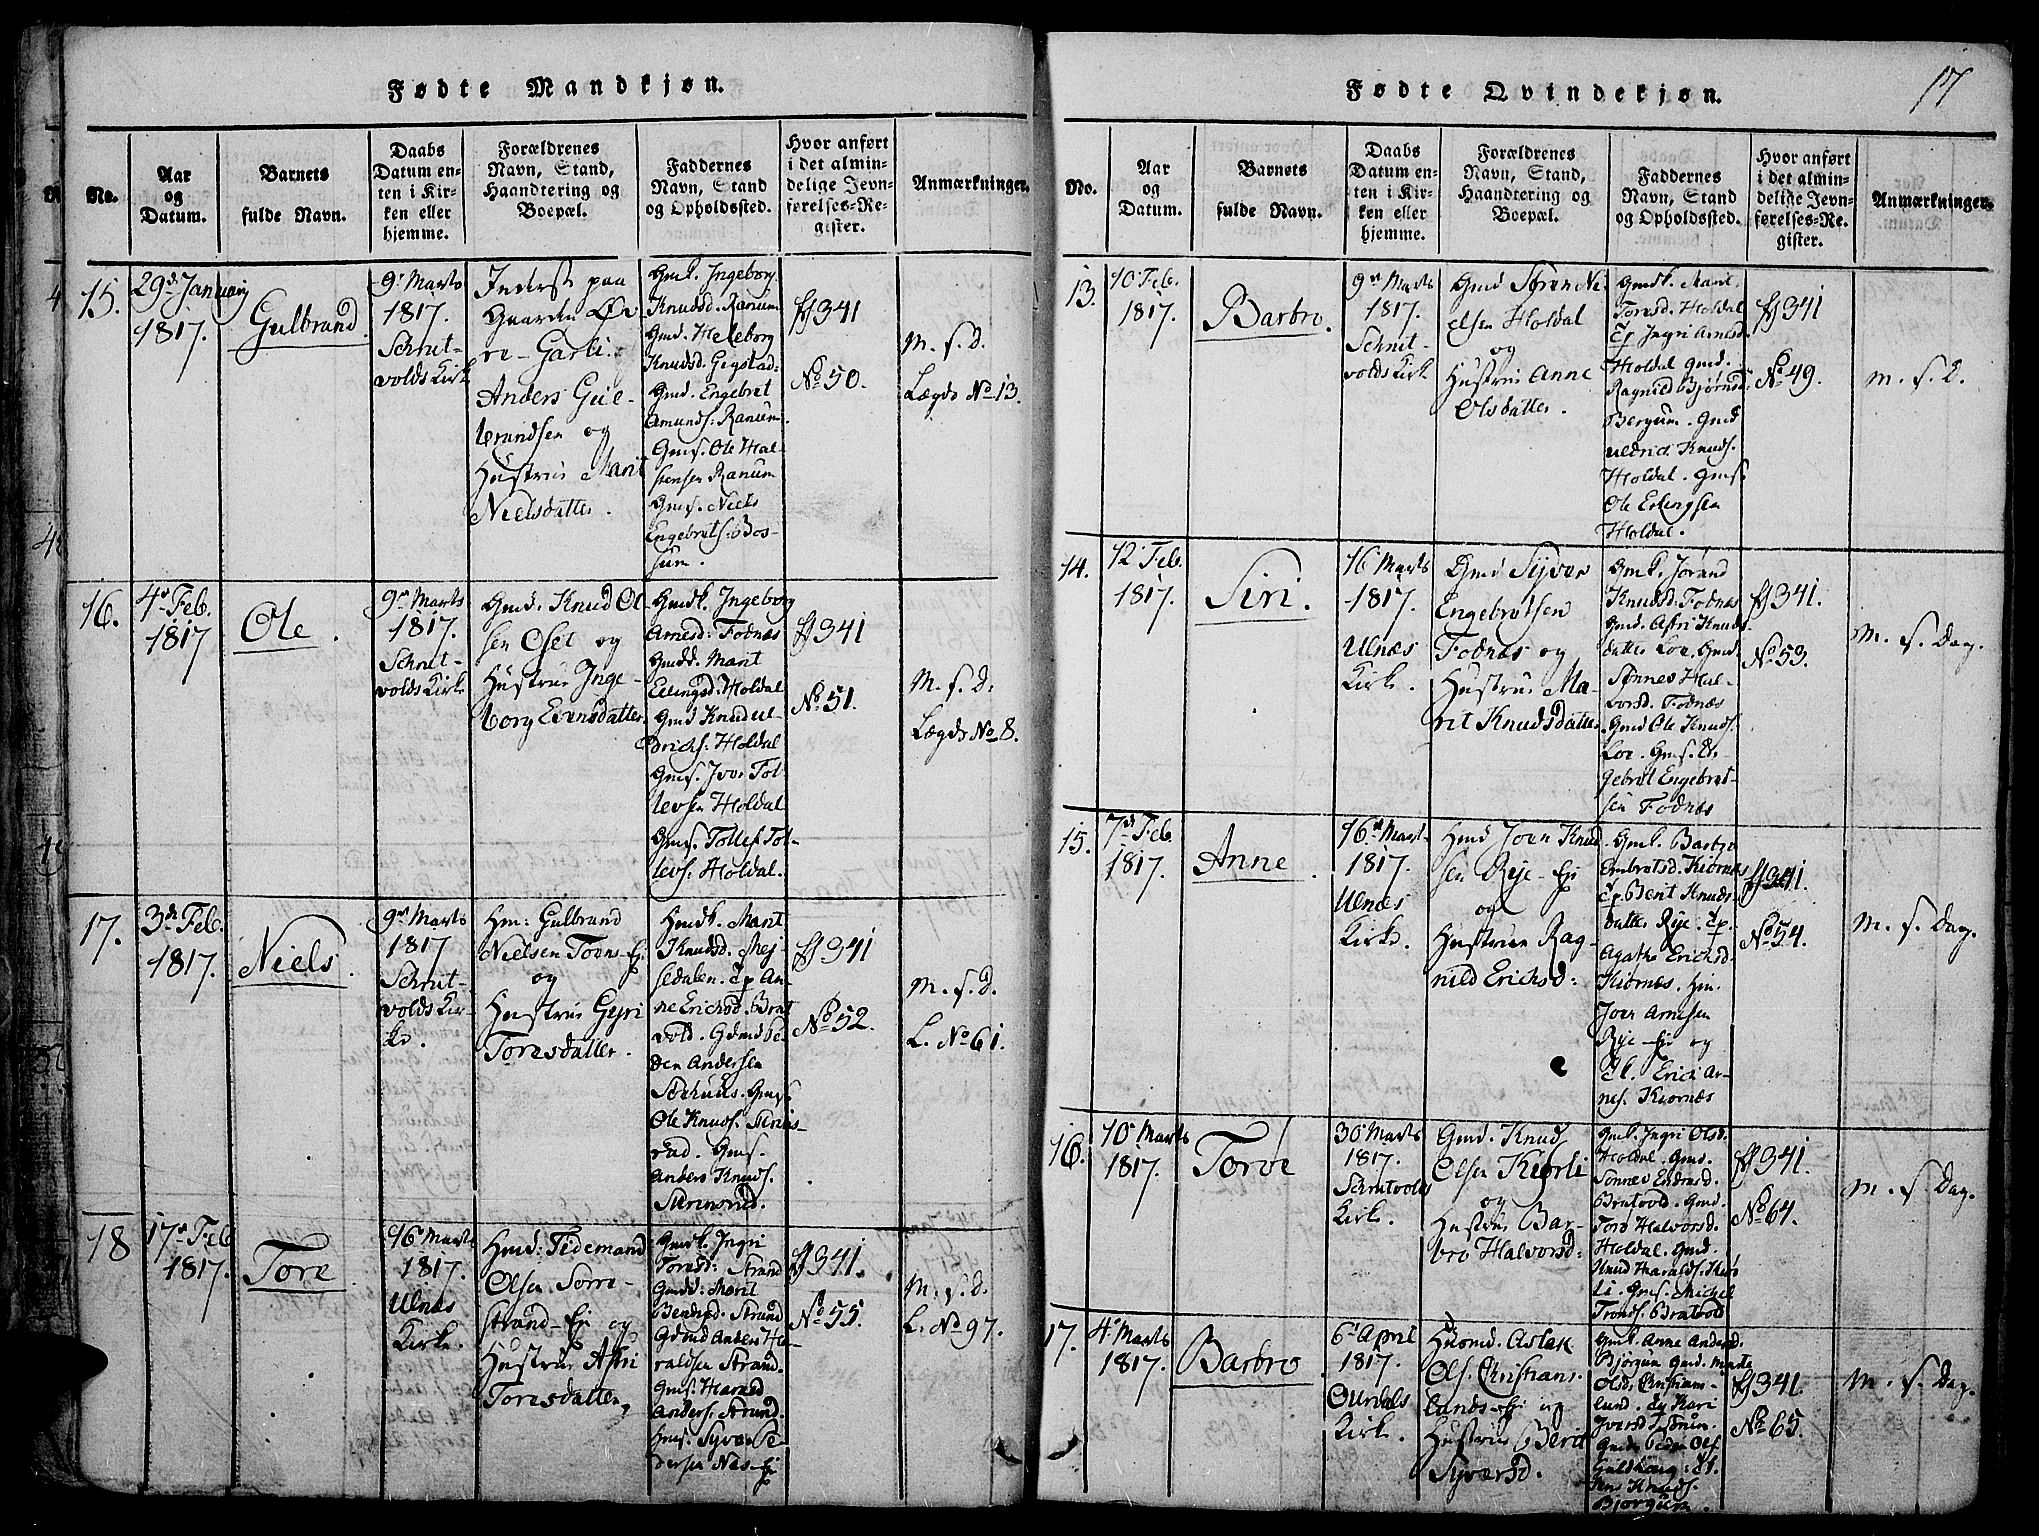 Fødte Mandkjøn.
No.
Aar
og
Datum.
Barnets
fulde Navn.
Daabs
Datum en-
ten i Kir-
ken eller
hjemme.
Forældrenes
Navn, Stand,
Haandtering og
Boepæl.
Faddernes
Navn, Stand
og Opholdssted.
Hvor anført
i det almin-
delige Jevn-
førelses-Re-
gister.
Anmærkninger.
15.
29de January
1817.
Gulbrand
9de Marts
1817.
Schrut-
volds Kirk
Inderst paa
Gaarden Øv
re Garli
Anders Gul-
brandsen og
Hustrue Marit
Nielsdatter.
Gmk. Ingeborg
Knudsd. Ranum
Gmd. Heleborg
Knudsd. Gigstad
Gmd. Engebret
Amunds: Ranum.
Gms. Ole Hal-
stensen Ranum
Gms. Niels
Engebrets: Bos-
sum.
ff 341
No 50.
M. s. D.
Lægds No 13.
16.
4de Feb.
1817
Ole.
9de Marts
1817.
Schrut-
volds Kirk
Gmd. Knud Ol-
sen Oset og
Hustrue Inge-
borg Evensdatter
Gmdk. Ingeborg
Arnesd: Fodnæs
Gmdd. Marit
Erlingsd: Holdal
Gmd Knud Ul-
drichs: Holdal
Gms. Iver Tol-
levsen Holdal
Gms. Tollef Tol-
levs: Holdal.
ff 341
No 51.
M. s. D:
Lægds No 8.
17.
3de Feb.
1817.
Niels.
9de Marts
1817
Schrut-
volds Kir-
ke.
Hm: Gulbrand
Nielsen Tovns-Ej
og
Hustrue Gyri
Toresdatter.
Hmdk. Marit
Knudsd. Mej-
sedalen. Ep An-
ne Erichsd. Brat
vold. Gdmd Pe-
der Andersen
Gms.
Ole Knuds.
rud. Gms.
Anders Knuds.
ff 341
No 52.
M. s. D.
L. No 61.
18
17de Feb
1817.
Tore
16de Marts
1817.
Ulnæs
Kirke.
Hmd: Tidemand
Olsen Sørre-
strand-Ej og
Hustrue Astri
Toresdatter,
Gmdk. Ingri
Toresd: Strand
Gmdd: Marit
Strand
Gdmd Anders Ha-
raldsen Strand
Gms: Harald
Anders: Strand.
Hms. Syver Pe-
dersen Næs-Ej
ff 341.
No 55.
M. s. D.
L. No 97.
Fødte Qvindekjøn.
17
No.
Aar
og
Datum.
Barnets
fulde Navn.
Daabs
Datum en-
ten i Kir-
ken eller
hjemme.
Forældrenes
Navn, Stand,
Haandtering og
Boepæl.
Faddernes
Navn, Stand
og Opholdssted.
Hvor anført
i det almin-
delige Jevn-
førelses-Re-
gister.
Anmærkninger.
13.
10 Feb.
1817.
Barbro.
9de Marts
1817.
Schrut-
volds Kirk
Gmd Søren Ni-
elsen Holdal
og
Hustrue Anne
Olsdatter.
Gmdk. Marit
Toresd. Holdal
Ep Ingri Arnesd.
Holdal Gmd.
Ragnild Bjørnsd
Bergum. Gmd
Uldrich Knuds.
Holdal. Gms.
Ole Erlingsen
Holdal.
ff 341
No 49.
M. s. D.
14.
12 Feb.
1817.
Siri.
16 Marts
1817.
Ulnæs
Kirk.
Gmd Syver
Engebretsen
Fodnæs og
Hustrue Ma-
rit Knudsdatter
Gmk. Jørand
Knudsd: Fodnæs
Gmd. Astri Knuds-
datter Loe. Gmd.
Synnes Hal-
vorsd. Fodnæs
Gmd Ole Knuds.
Loe. Gms. En-
gebret Engebret-
sen Fodnæs
ff 341.
No 53.
M. s. Dag.
15.
7de Feb
1817.
Anne.
16de Marts
1817.
Ulnæs
Kirke.
Hmd Joen Knud
sen Rye-Ej
og
Hustrue Rag-
nild Erichsd:
Gmk. Barbro
Embretsd. Kiørnæs
Ep Berit Knuds
datter Rye. Ep.
Agathe Erichsd
Kiørnæs. Hm.
Joen Arnesen
Rye-Ej og
Erich Ar-
nes. Kiørnæs
ff 341.
No 54.
M. s. Dag.
16.
10 Marts
1817.
Torøe
30 Marts
1817.
Schrutvolds
Kirk.
Gmd. Knud
Olsen Kiørli
og
Hustrue Bar-
bro Halvorsd:
Gmk. Ingri Olsd.
Holdal. Gmd.
Sønnev Endresd.
Bratvold. Gmd.
Tore Halvorsd.
Holdal. Gmd.
Knud Haralds. Kiør
li. Gms. Michel
Tronds. Bratvold
ff 341.
No 64.
M. s. Dag.
17.
4de Marts
1817.
Barbro.
6de April
1817.
Ourdals
Kirke.
Huusmd. Aslak
Ols. Christians-
lunds-Ej og
Hustrue Berit
Syversd.
Gmk. Anne Andersd.
Bjørgum Gmd. Marte
Olsd. Christians-
lund. Ep Kari
Iversd
Gmd: Peder Ols.
Knuds.
Bjørgum.
ff 341.
No 65.
M. s. Dag.